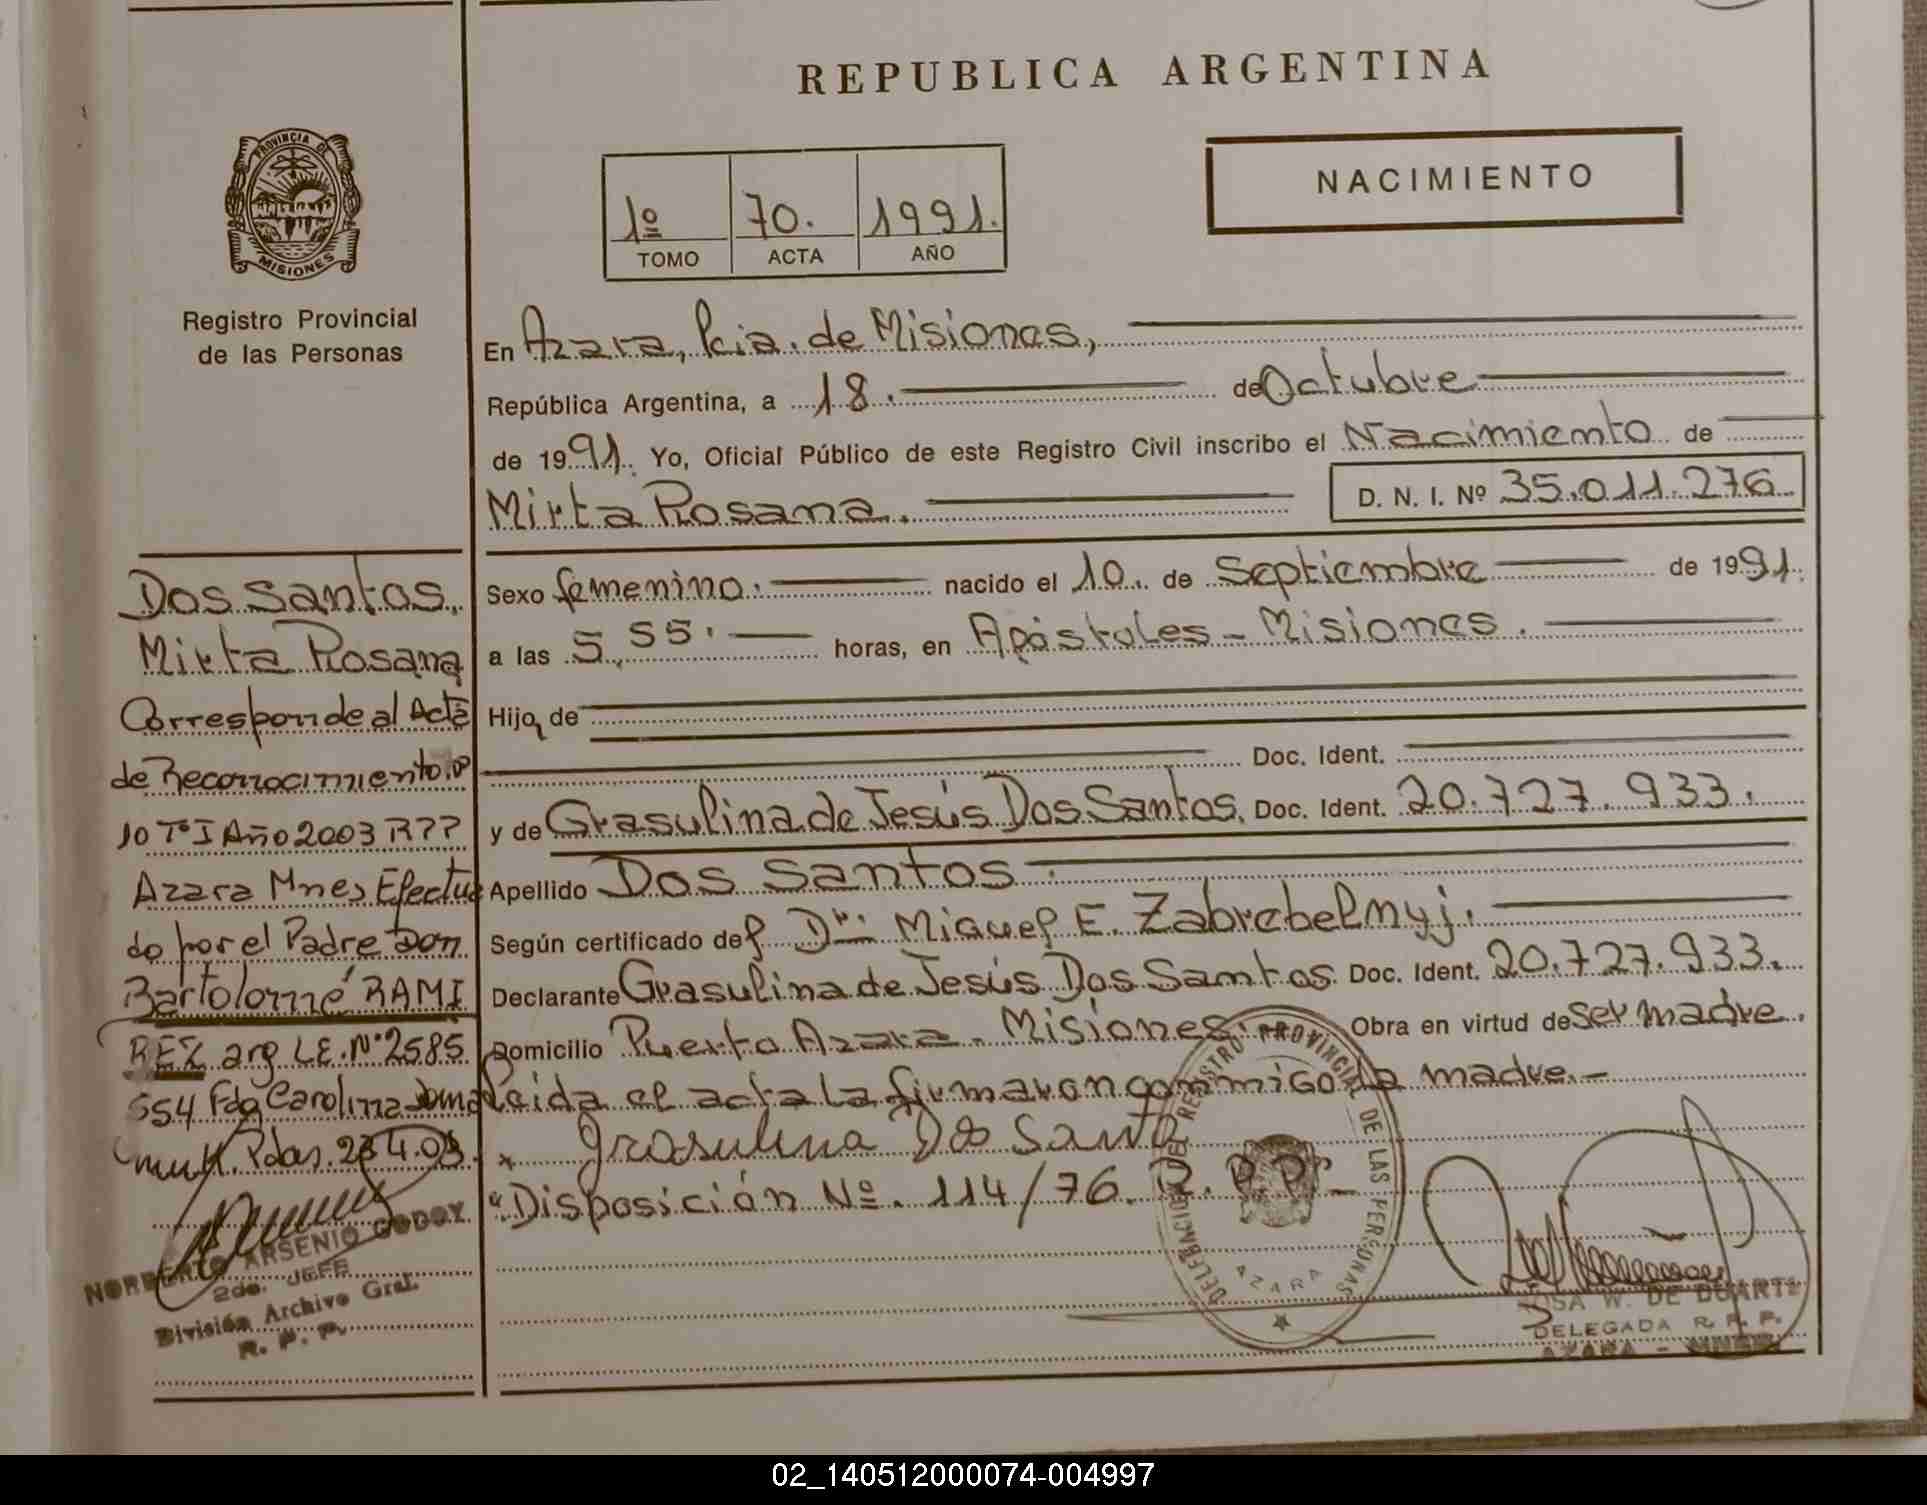 REPUBLICA ARGENTINA
NACIMIENTO
1º 70. 1991.
TOMO ACTA AÑO
PROVINCIA DE
MISIONES
Registro Provincial
de las Personas
En Azara, Pcia. de Misiones,
República Argentina, a 18. de Octubre
de 1991. Yo, Oficial Público de este Registro Civil inscribo el Nacimiento de
Mirta Rosana. D. N. I. Nº 35.011.276
Sexo femenino. nacido el 10. de Septiembre de 1991.
a las 5,55. horas, en Apóstoles - Misiones.
Hija de
Doc. Ident.
y de Grasulina de Jesús Dos Santos. Doc. Ident. 20.727.933.
Apellido Dos Santos.
Según certificado del Dr. Miguel E. Zabrebelnyj.
Declarante Grasulina de Jesús Dos Santos. Doc. Ident. 20.727.933.
Domicilio Puerto Azara - Misiones. Obra en virtud de ser madre.
Leída el acta la firmaron conmigo la madre.-
x Grasulina Dos Santo
"Disposición Nº. 114/76. R.P.P.-
DELEGACION DEL REGISTRO PROVINCIAL DE LAS PERSONAS
AZARA
ROSA W. DE DUARTE
DELEGADA R. P. P.
AZARA - MNES.
Dos Santos,
Mirta Rosana
Corresponde al Acta
de Reconocimiento.º
10 Tº I Año 2003 R??
Azara Mnes Efectua
do por el Padre Don
Bartolomé RAMI
REZ arg LE.Nº2585
554 Fdo Carolina
Pdas. 23 4.03.
NORBERTO ARSENIO GODOY
2do. JEFE
División Archivo Gral.
R. P. P.
02_140512000074-004997